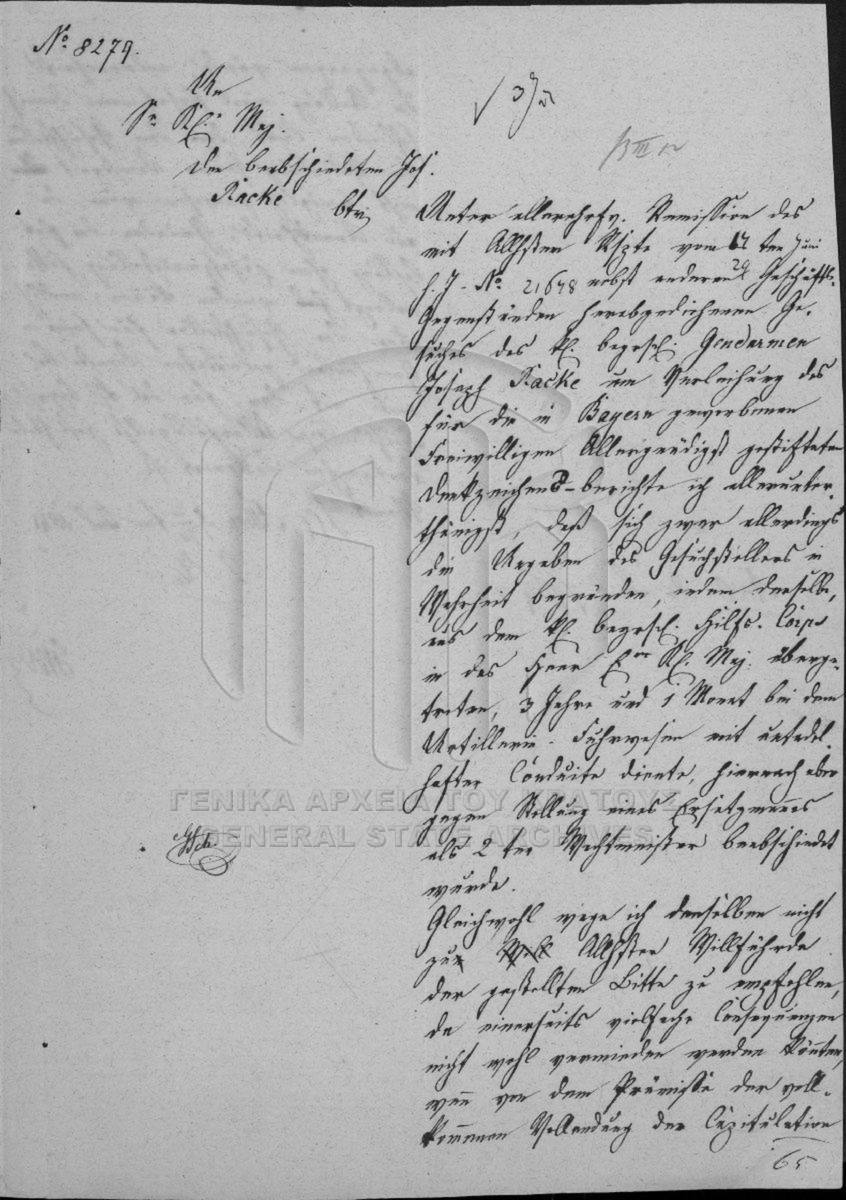 No. 8279.
An
Se. Kgl. Maj.
Den verabschiedeten Jos.
Racke btr.
Unter allerehrfv. Remission des
mit Allhster Akzte vom ten Juni
29
h. J. No. 21678 nebst anderen Geschäfts-
Gegenständen herabgediehenen Ge-
suches des kl. bayrsch. Gendarmen
Joseph Racke um Verleihung des
für die in Bayern geworbenen
Freiwilligen Allergnädigst gestifteten
Denkzeichens - berichte ich allerunter-
thänigst, daß sich zwar allerdings
die Angaben des Gesuchstellers in
Wahrheit begründen, indem derselbe,
aus dem kl. bayrsch. Hilfs-Corps
in das Heer Eur Kl. Maj. überge-
treten, 3 Jahre und 1 Monat bei dem
Artillerie-Fuhrwesen mit untadel-
hafter Conduite diente, hiernach aber
gegen Stellung eines Ersatzmannes
als 2ter Wachtmeister verabschiedet
wurde.
Gleichwohl wage ich denselben nicht
zur Allhsten Willfahrde
der gestellten Bitte zu empfehlen,
da einerseits vielfache Consequenzen
nicht wohl vermieden werden könnten,
wenn von dem Prämisse der voll-
kommenen Vollendung der Capitulation
65
ΓΕΝΙΚΑ ΑΡΧΕΙΑ ΤΟΥ ΚΡΑΤΟΥΣ
GENERAL STATE ARCHIVES